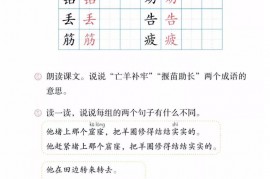 丢 丢 告 告
筋 筋 疲 疲
朗读课文。说说“亡羊补牢”“揠苗助长”两个成语的
意思。
读一读，说说每组的两个句子有什么不同。
kū lóng
他堵上那个窟窿，把羊圈修得结结实实的。
他赶紧堵上那个窟窿，把羊圈修得结结实实的。
他在田边转来转去。